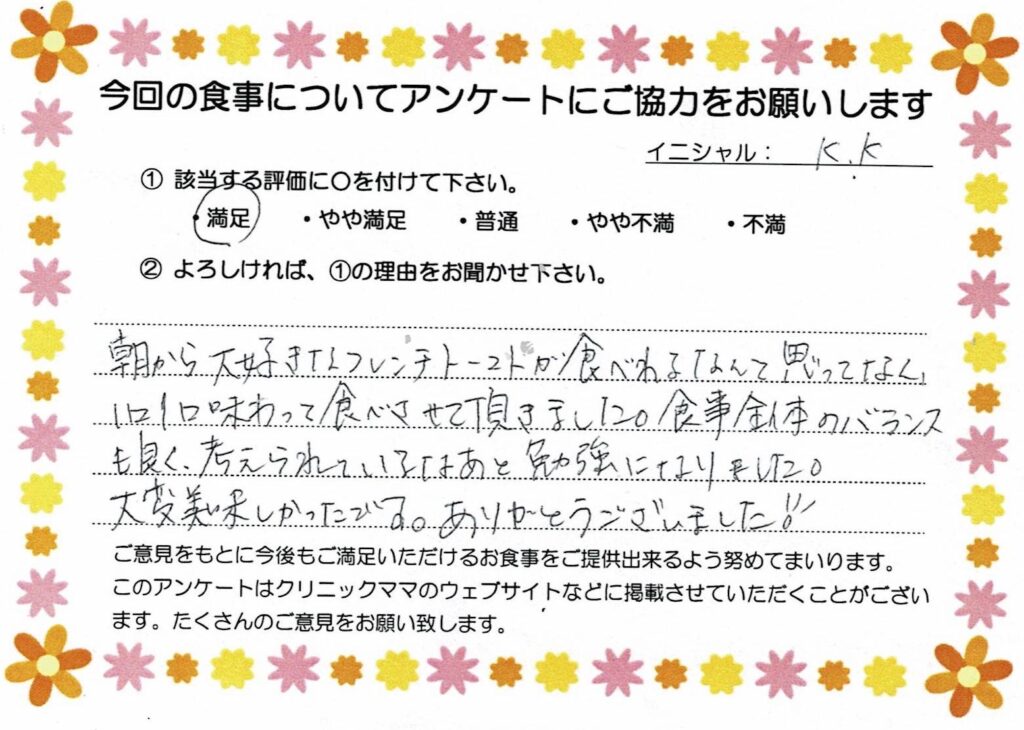 今回の食事についてアンケートにご協力をお願いします
イニシャル： K.K
① 該当する評価に〇を付けて下さい。
・満足 ・やや満足 ・普通 ・やや不満 ・不満
② よろしければ、①の理由をお聞かせ下さい。
朝から大好きなフレンチトーストが食べれるなんて思ってなく、
1口1口味わって食べさせて頂きました。食事全体のバランス
も良く、考えられているなあと勉強になりました。
大変美味しかったです。ありがとうございました!!
ご意見をもとに今後もご満足いただけるお食事をご提供出来るよう努めてまいります。
このアンケートはクリニックママのウェブサイトなどに掲載させていただくことがござい
ます。たくさんのご意見をお願い致します。